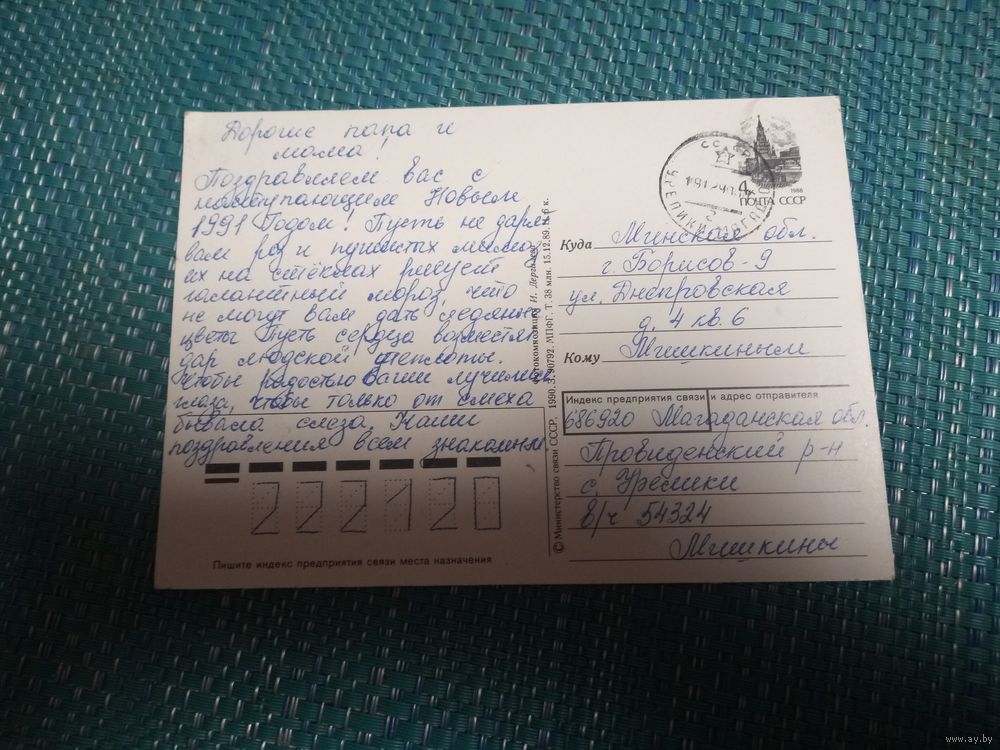 Дорогие папа и
мама!
Поздравляем вас с
наступающим Новым
1991 Годом! Пусть не дарят
вам роз и пушистых мимоз,
их на стёклах рисует
галантный мороз, что
не могут вам дать
цветы Пусть сердца
дар людской теплоты.
Чтобы радостью Ваши лучились
глаза, чтобы только от смеха
бывала слеза. Наши
поздравления всем знакомым
222120
Пишите индекс предприятия связи места назначения
© Министерство связи СССР. 1990. З. 90792. МПФГ. Т. 38 млн. 15.12.89. Ц. 6 к.
Фотокомпозиция И. Дергилёва
СССР
4к
1988
ПОЧТА СССР
Куда Минская обл.
г. Борисов-9
ул. Днепровская
д. 4 кв. 6
Кому Мишкиным
Индекс предприятия связи и адрес отправителя
686920 Магаданская обл.
Провиденский р-н
с. Урелики
в/ч 54324
Мишкины
www.ay.by